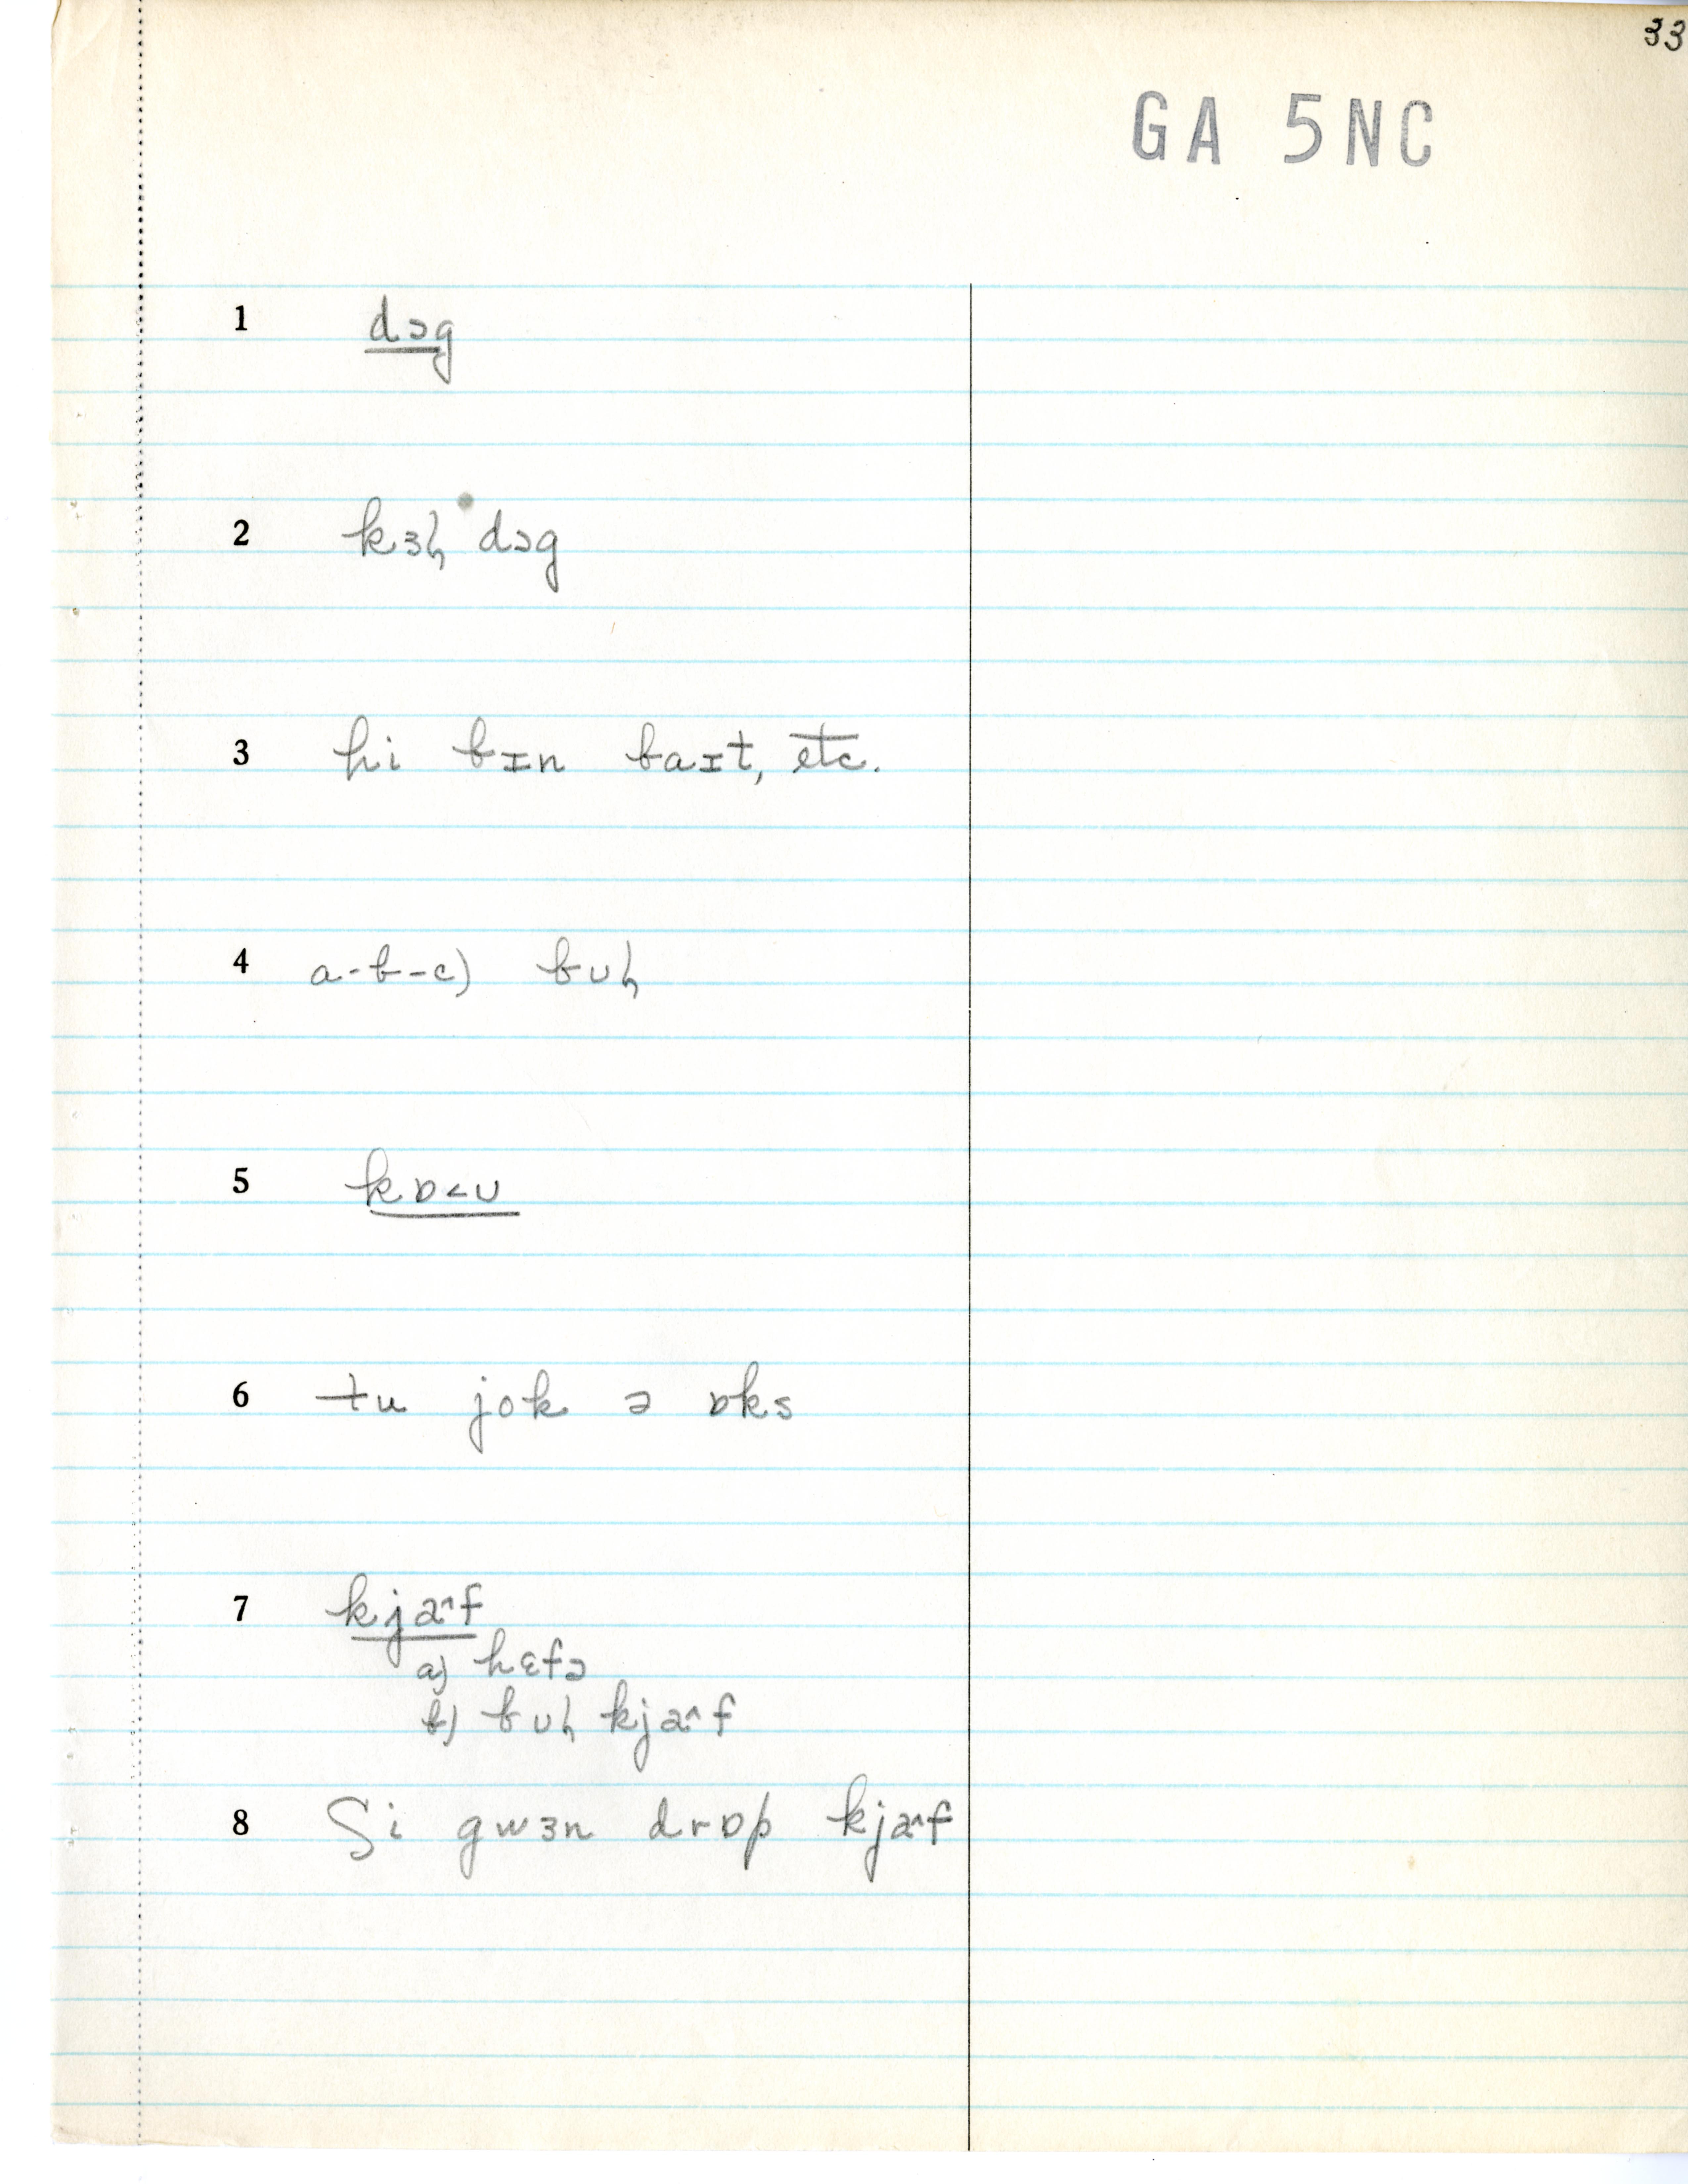 33
GA 5NC
1 dɔg
2 kɜɦ dɔg
3 hi bɪn baɪt, etc.
4 a-b-c) bʊɦ
5 kɒ<ʊ
6 tu jok ə ɒks
7 kja^f
a) hɛfə
b) bʊɦ kja^f
8 Si gwɜn drɒp kja^f